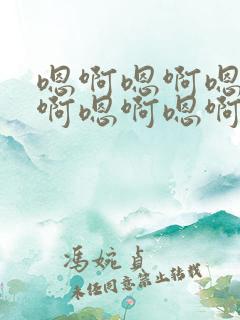 嗯啊嗯啊嗯
啊嗯啊嗯啊
冯婉贞
未经同意禁止转载